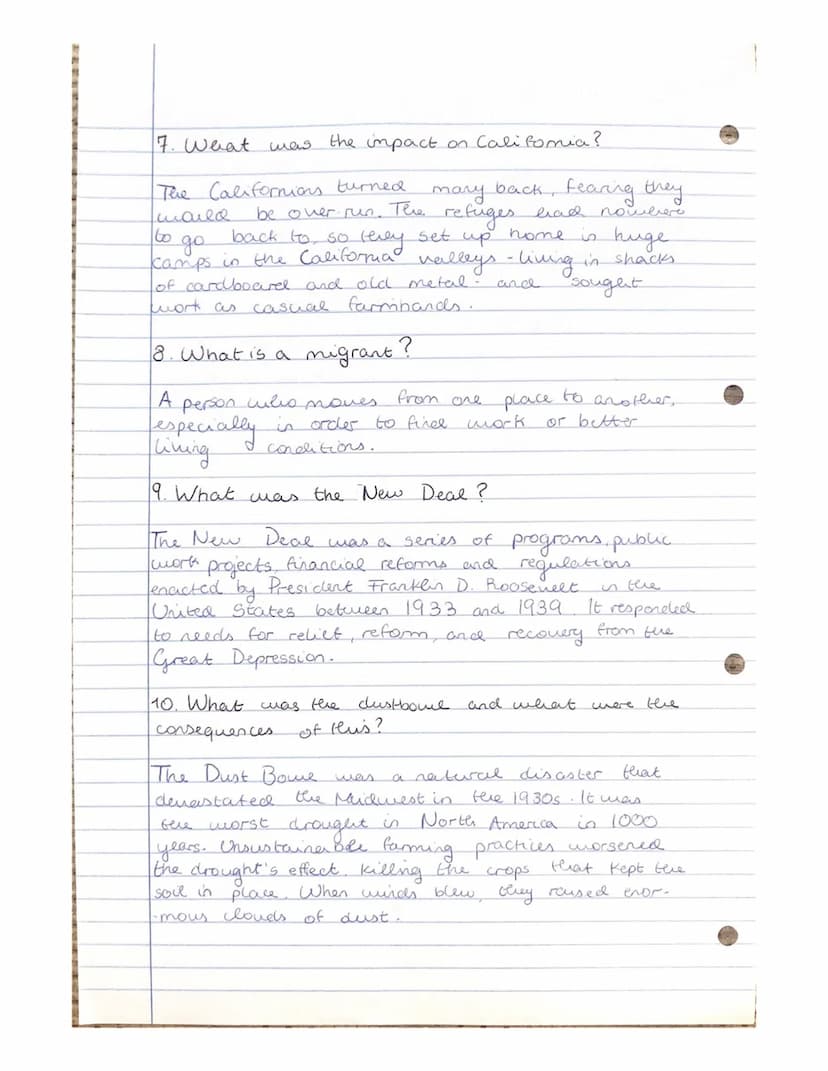 7. What was the impact on California?
The Californians turned many back, fearing they
would be over run. The refuges had nowhere
to go back to, so they set up home in huge
camps in the California valleys - living in shacks
of cardboard and old metal - and sought
work as casual farmhands.
8. What is a migrant?
A person who moves from one place to another,
especially in order to find work or better
living conditions.
9. What was the New Deal?
The New Deal was a series of programs, public
work projects, financial reforms and regulations
enacted by President Franklin D. Roosevelt in the
United States between 1933 and 1939. It responded
to needs for relief, reform, and recovery from the
Great Depression.
10. What was the dustbowl and what were the
consequences of this?
The Dust Bowl was a natural disaster that
devastated the Midwest in the 1930s. It was
the worst drought in North America in 1000
years. Unsustainable farming practies worsened
the drought's effect, killing the crops that kept the
soil in place. When winds blew, they raised enor-
-mous clouds of dust.